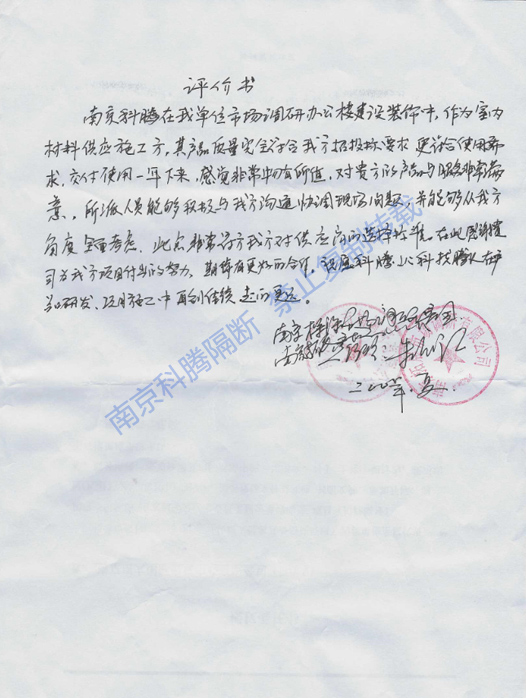 评价书
南京科腾在我单位市场调研办公楼建设装饰中,作为室内
材料供应施工方,其产品质量完全符合我方招投标要求更符合使用需
求,交付使用一年下来,感觉非常物有所值,对贵方的产品与服务非常满
意。所派人员能够积极与我方沟通协调现场问题,并能够从我方
角度全面考虑,此点非常符合我方对供应商的选择标准。在此感谢贵
司为我方项目付出的努力,期待有更好的合作,祝愿科腾以科技腾飞在产
品研发、项目施工中再创佳绩,走向更远。
南京
南京科腾隔断 禁止复制转载
限公司